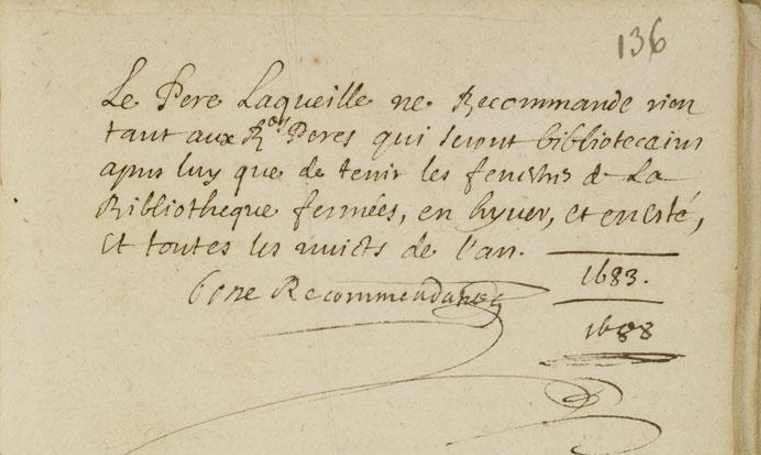 136
Le Pere Laqueille ne Recommande rien
tant aux R.ds Peres qui seront bibliotecaires
apres luy que de tenir les fenestres de La
Bibliotheque fermées, en hyver, et en esté,
et toutes les nuicts de l'an.
1683.
bone Recommendation
1688